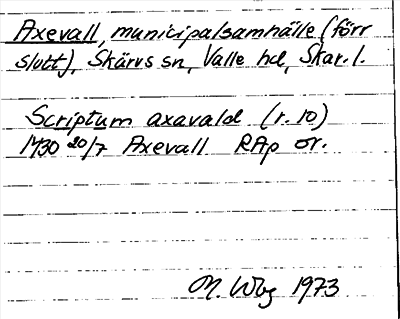 Axevall, municipalsamhälle (förr
slott), Skärvs sn, Valle hd, Skar. l.
Scriptum axavald (r. 10)
1430 20/7 Axevall RAp or.
M. Wbg 1973